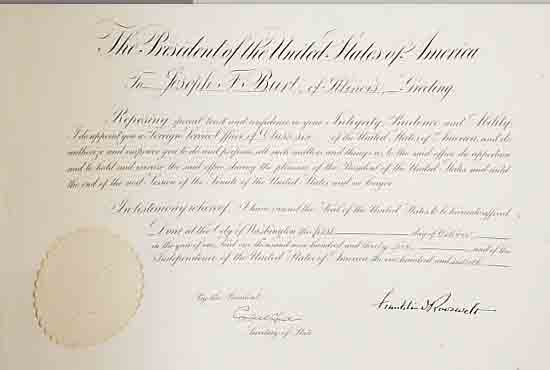 The President of the United States of America
To Joseph F. Burt, of Illinois, Greeting:
Reposing special trust and confidence in your Integrity, Prudence and Ability
I do appoint you a Foreign Service Officer of Class Six of the United States of America, and do
authorize and empower you to do and perform all such matters and things as to the said office do appertain
and to hold and exercise the said office during the pleasure of the President of the United States and until
the end of the next Session of the Senate of the United States and no longer.
In testimony whereof, I have caused the Seal of the United States to be hereunto affixed.
Done at the City of Washington this first day of October,
in the year of our Lord one thousand nine hundred and thirty-five and of the
Independence of the United States of America the one hundred and sixtieth
By the President:
Franklin D Roosevelt
Cordell Hull
Secretary of State